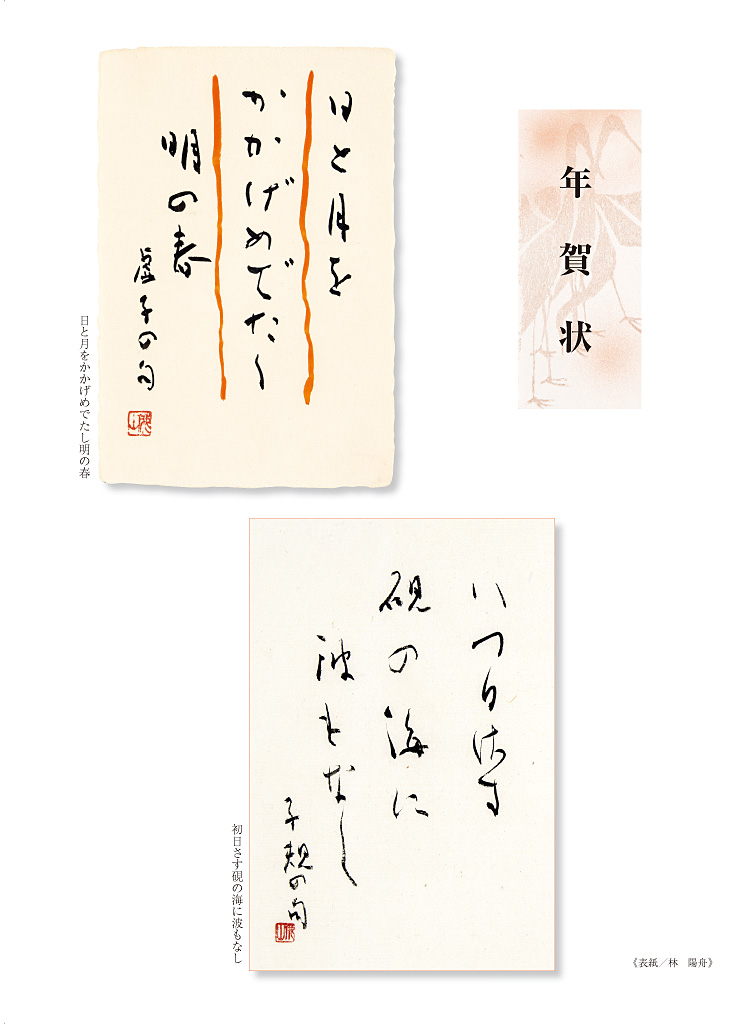 年賀状
日と月を
かかげめでたし
明の春
虚子の句
日と月をかかげめでたし明の春
ハつ日佐す
硯の海に
波もなし
子規の句
初日さす硯の海に波もなし
《表紙／林　陽舟》